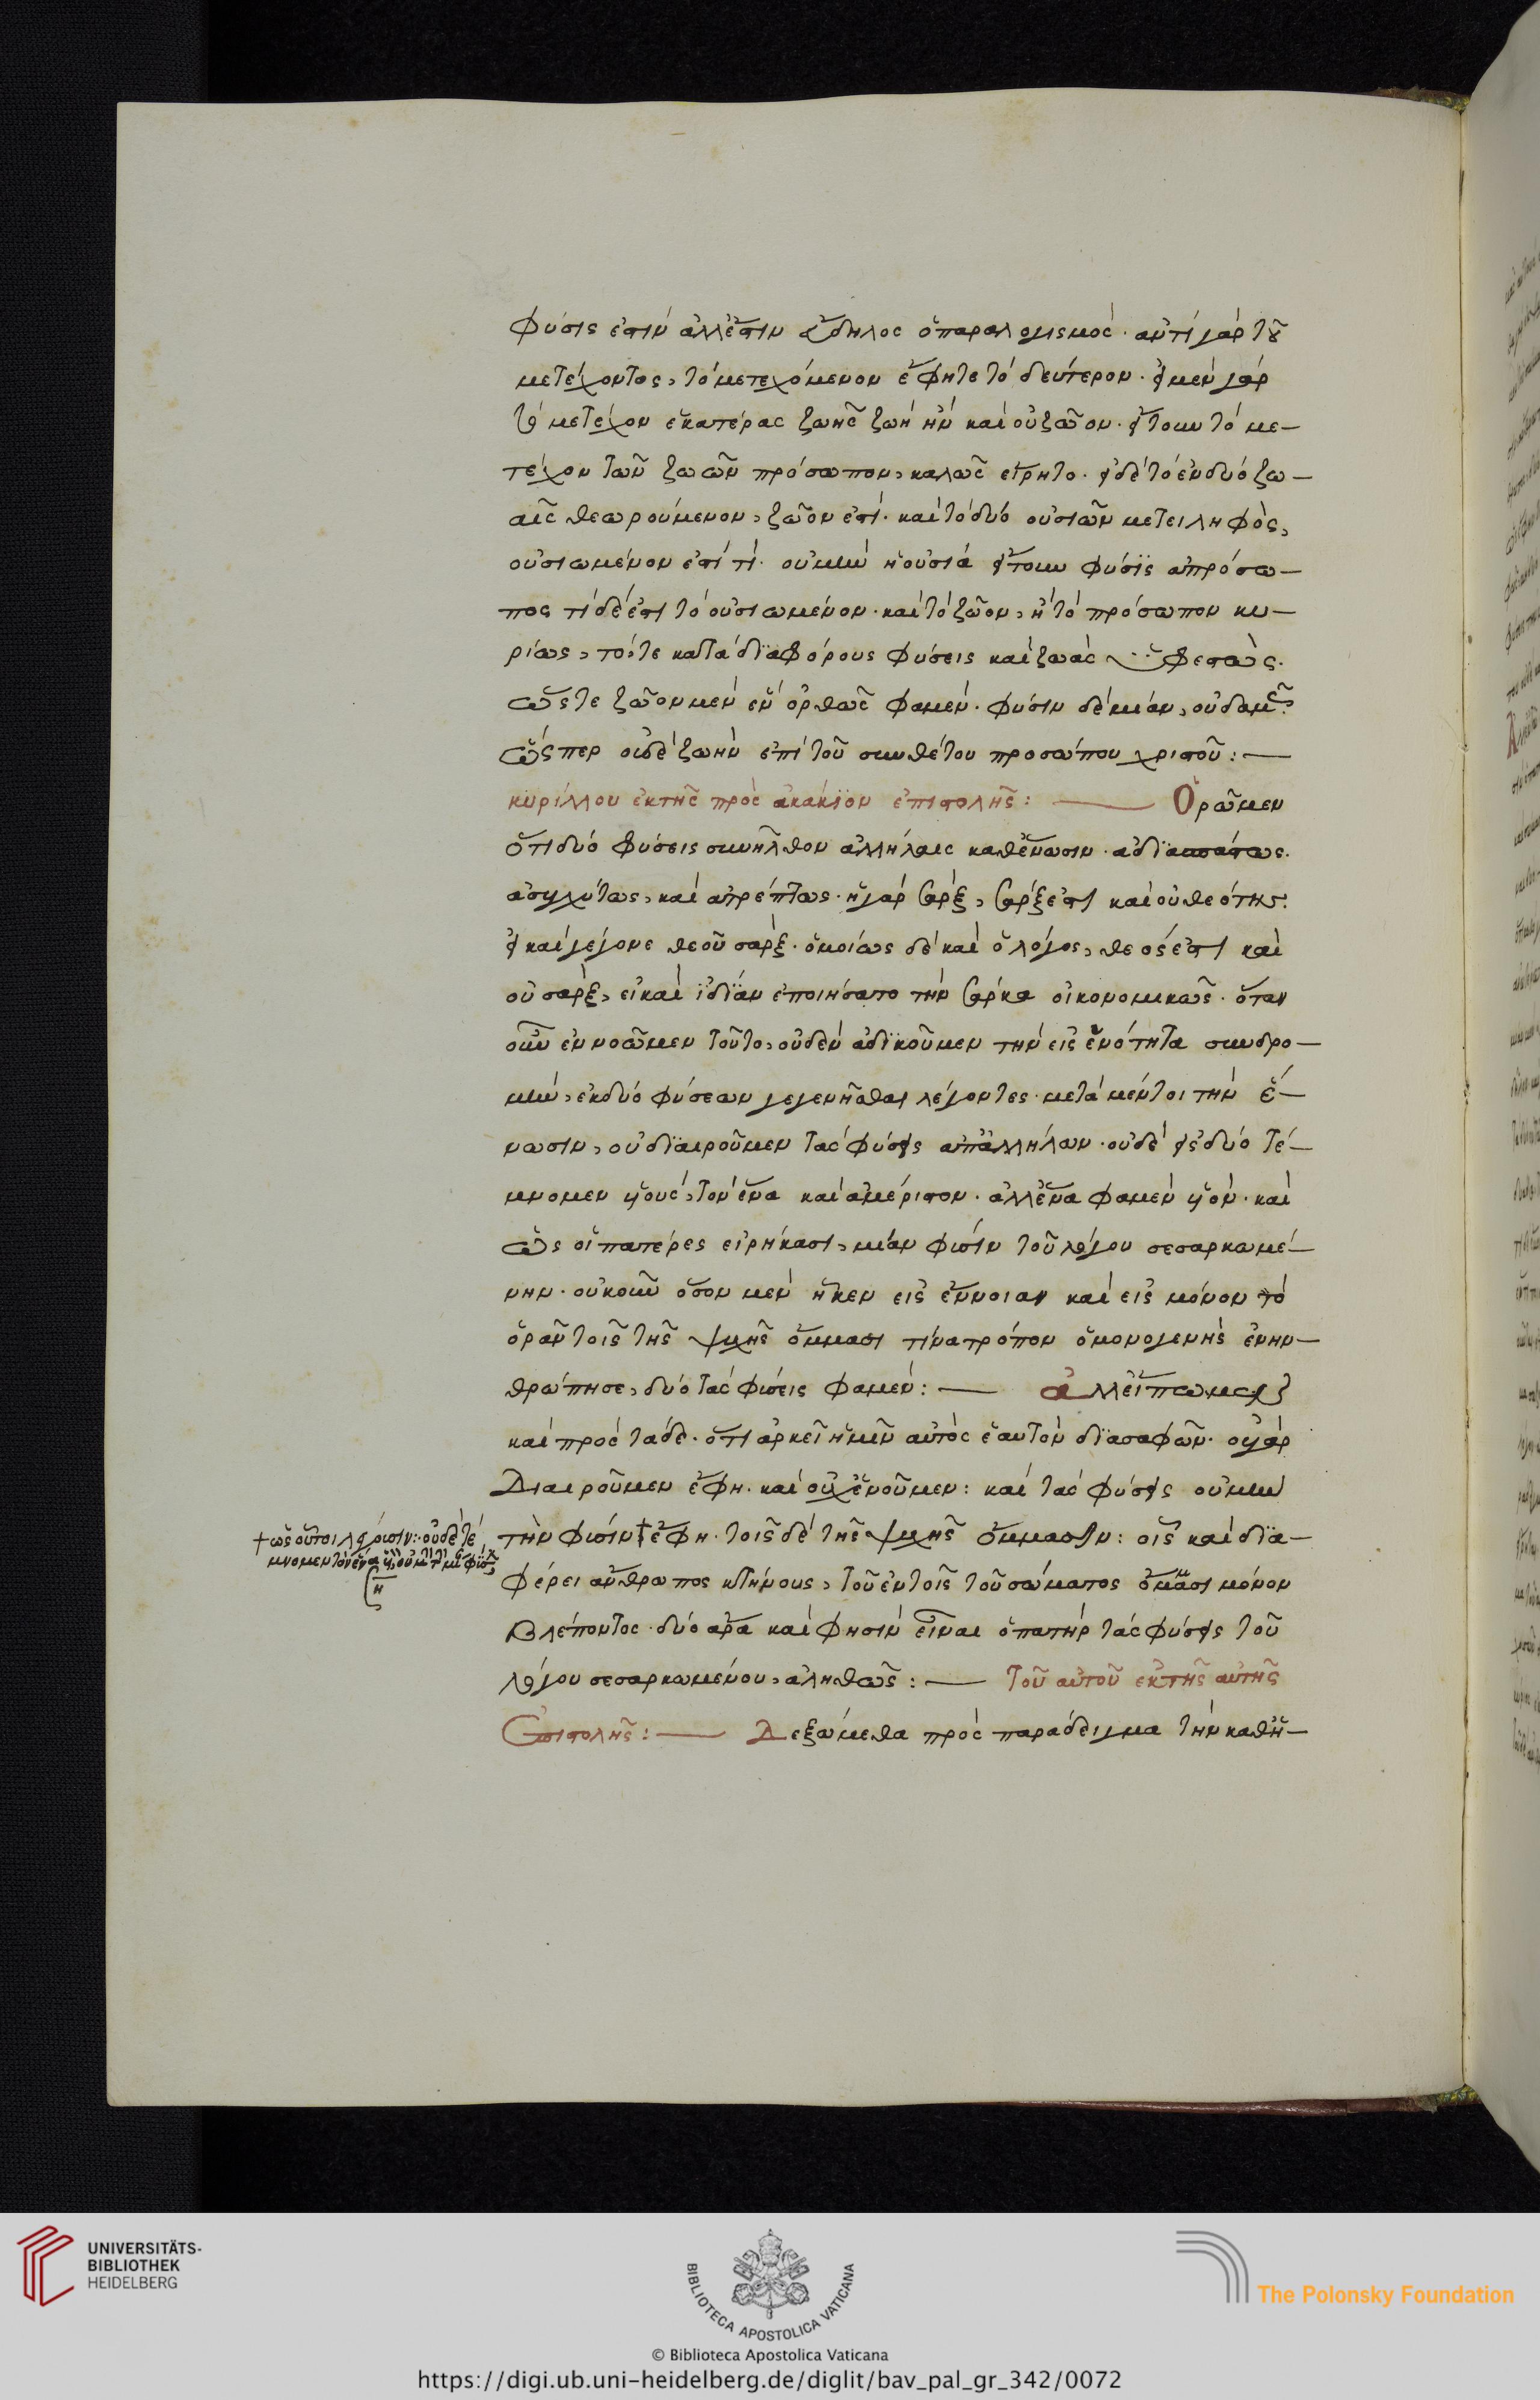 φύσις ἐστίν ἀλλ' ἔστιν εὔδηλος ὁ παραλογισμός · ἀντί γάρ τοῦ
μετέχοντος, τό μετεχόμενον ἔφητε τό δεύτερον · εἰ μέν γάρ
τό μετέχον ἑκατέρας ζωῆς ζωή ἦν καί οὐ ζῶον · ἤτουν τό με-
τέχον τῶν ζωῶν πρόσωπον, καλῶς εἴρητο · εἰ δέ τό ἐν δυό ζω-
αῖς θεωρούμενον, ζῶον ἐστί · καί τό δυό οὐσιῶν μετειληφός,
οὐσιωμένον ἐστί τί · οὐ μήν ἡ οὐσία ἤτουν φύσϊς ἀπρόσω-
πος τί δέ ἐστι τό οὐσιωμένον · καί τό ζῶον, ἤ τό πρόσωπον κυ-
ρίως, τό, τε κατά δϊαφόρους φύσεις καί ζωάς ὑφεστώς ·
ὥστε ζῶον μέν ἕν ὀρθῶς φαμέν · φύσιν δέ μίαν, οὐδαμῶς
ὥσπερ οὐδέ ζωήν ἐπί τοῦ συνθέτου προσώπου χριστοῦ : —
κυρίλλου ἐκ τῆς πρός ἀκάκϊον ἐπιστολῆς : — Ὁρῶμεν
ὅτι δυό φύσεις συνῆλθον ἀλλήλαις καθ' ἕνωσιν · ἀδϊασπάστως ·
ἀσυγχύτως, καί ἀτρέπτως · ἡ γάρ σάρξ, σάρξ ἐστι καί οὐ θεότης ·
εἰ καί γέγονε θεοῦ σάρξ · ὁμοίως δέ καί ὁ λόγος, θεός ἐστι καί
οὐ σάρξ, εἰ καί ἰδϊαν ἐποιήσατο τήν σάρκα οἰκονομικῶς · ὅταν
οὖν ἐννοῶμεν τοῦτο, οὐδέν ἀδϊκοῦμεν τήν εἰς ἑνότητα συνδρο-
μήν, ἐκ δυό φύσεων γεγενῆσθαι λέγοντες · μετά μέντοι τήν ἕ-
νωσιν, οὐ δϊαιροῦμεν τάς φύσεις ἀπ' ἀλλήλων · οὐδέ εἰς δυό τέ-
μνομεν υἱούς, τόν ἕνα καί ἀμέριστον · ἀλλ' ἕνα φαμέν υἱόν · καί
ὡς οἱ πατέρες εἰρήκασι, μίαν φύσιν τοῦ λόγου σεσαρκωμέ-
νην · οὐκοῦν ὅσον μέν ἧκεν εἰς ἔννοιαν καί εἰς μόνον τό
ὁρᾶν τοῖς τῆς ψυχῆς ὄμμασι τίνα τρόπον ὁ μονογενής ἐνην-
θρώπησε, δυό τάς φύσεις φαμέν : — ἀλλ' εἴπωμεν
καί πρός τάδε · ὅτι ἀρκεῖ ἡμῖν αὐτός ἑαυτόν δϊασαφῶν · οὐ γάρ
Διαιροῦμεν ἔφη · καί οὐχ ἑνοῦμεν : καί τάς φύσεις οὐ μήν
τήν φύσιν † ἔφη · τοῖς δέ τῆς ψυχῆς ὄμμασιν : οἷς καί δϊα-
φέρει ἄνθρωπος κτήνους, τοῦ ἐν τοῖς τοῦ σώματος ὄμμασι μόνον
βλέποντος · δυό ἄρα καί φησιν εἶναι ὁ πατήρ τάς φύσεις τοῦ
λόγου σεσαρκωμένου, ἀληθῶς : — Τοῦ αὐτοῦ ἐκ τῆς αὐτῆς
Ἐπιστολῆς : — Δεξώμεθα πρός παράδειγμα τήν καθ' ἡ-
† ὡς οὗτοι ληροῦσιν : οὐδέ τέ
μνομεν τόν ἕνα
UNIVERSITÄTS-
BIBLIOTHEK
HEIDELBERG
BIBLIOTECA APOSTOLICA VATICANA
The Polonsky Foundation
© Biblioteca Apostolica Vaticana
https://digi.ub.uni-heidelberg.de/diglit/bav_pal_gr_342/0072